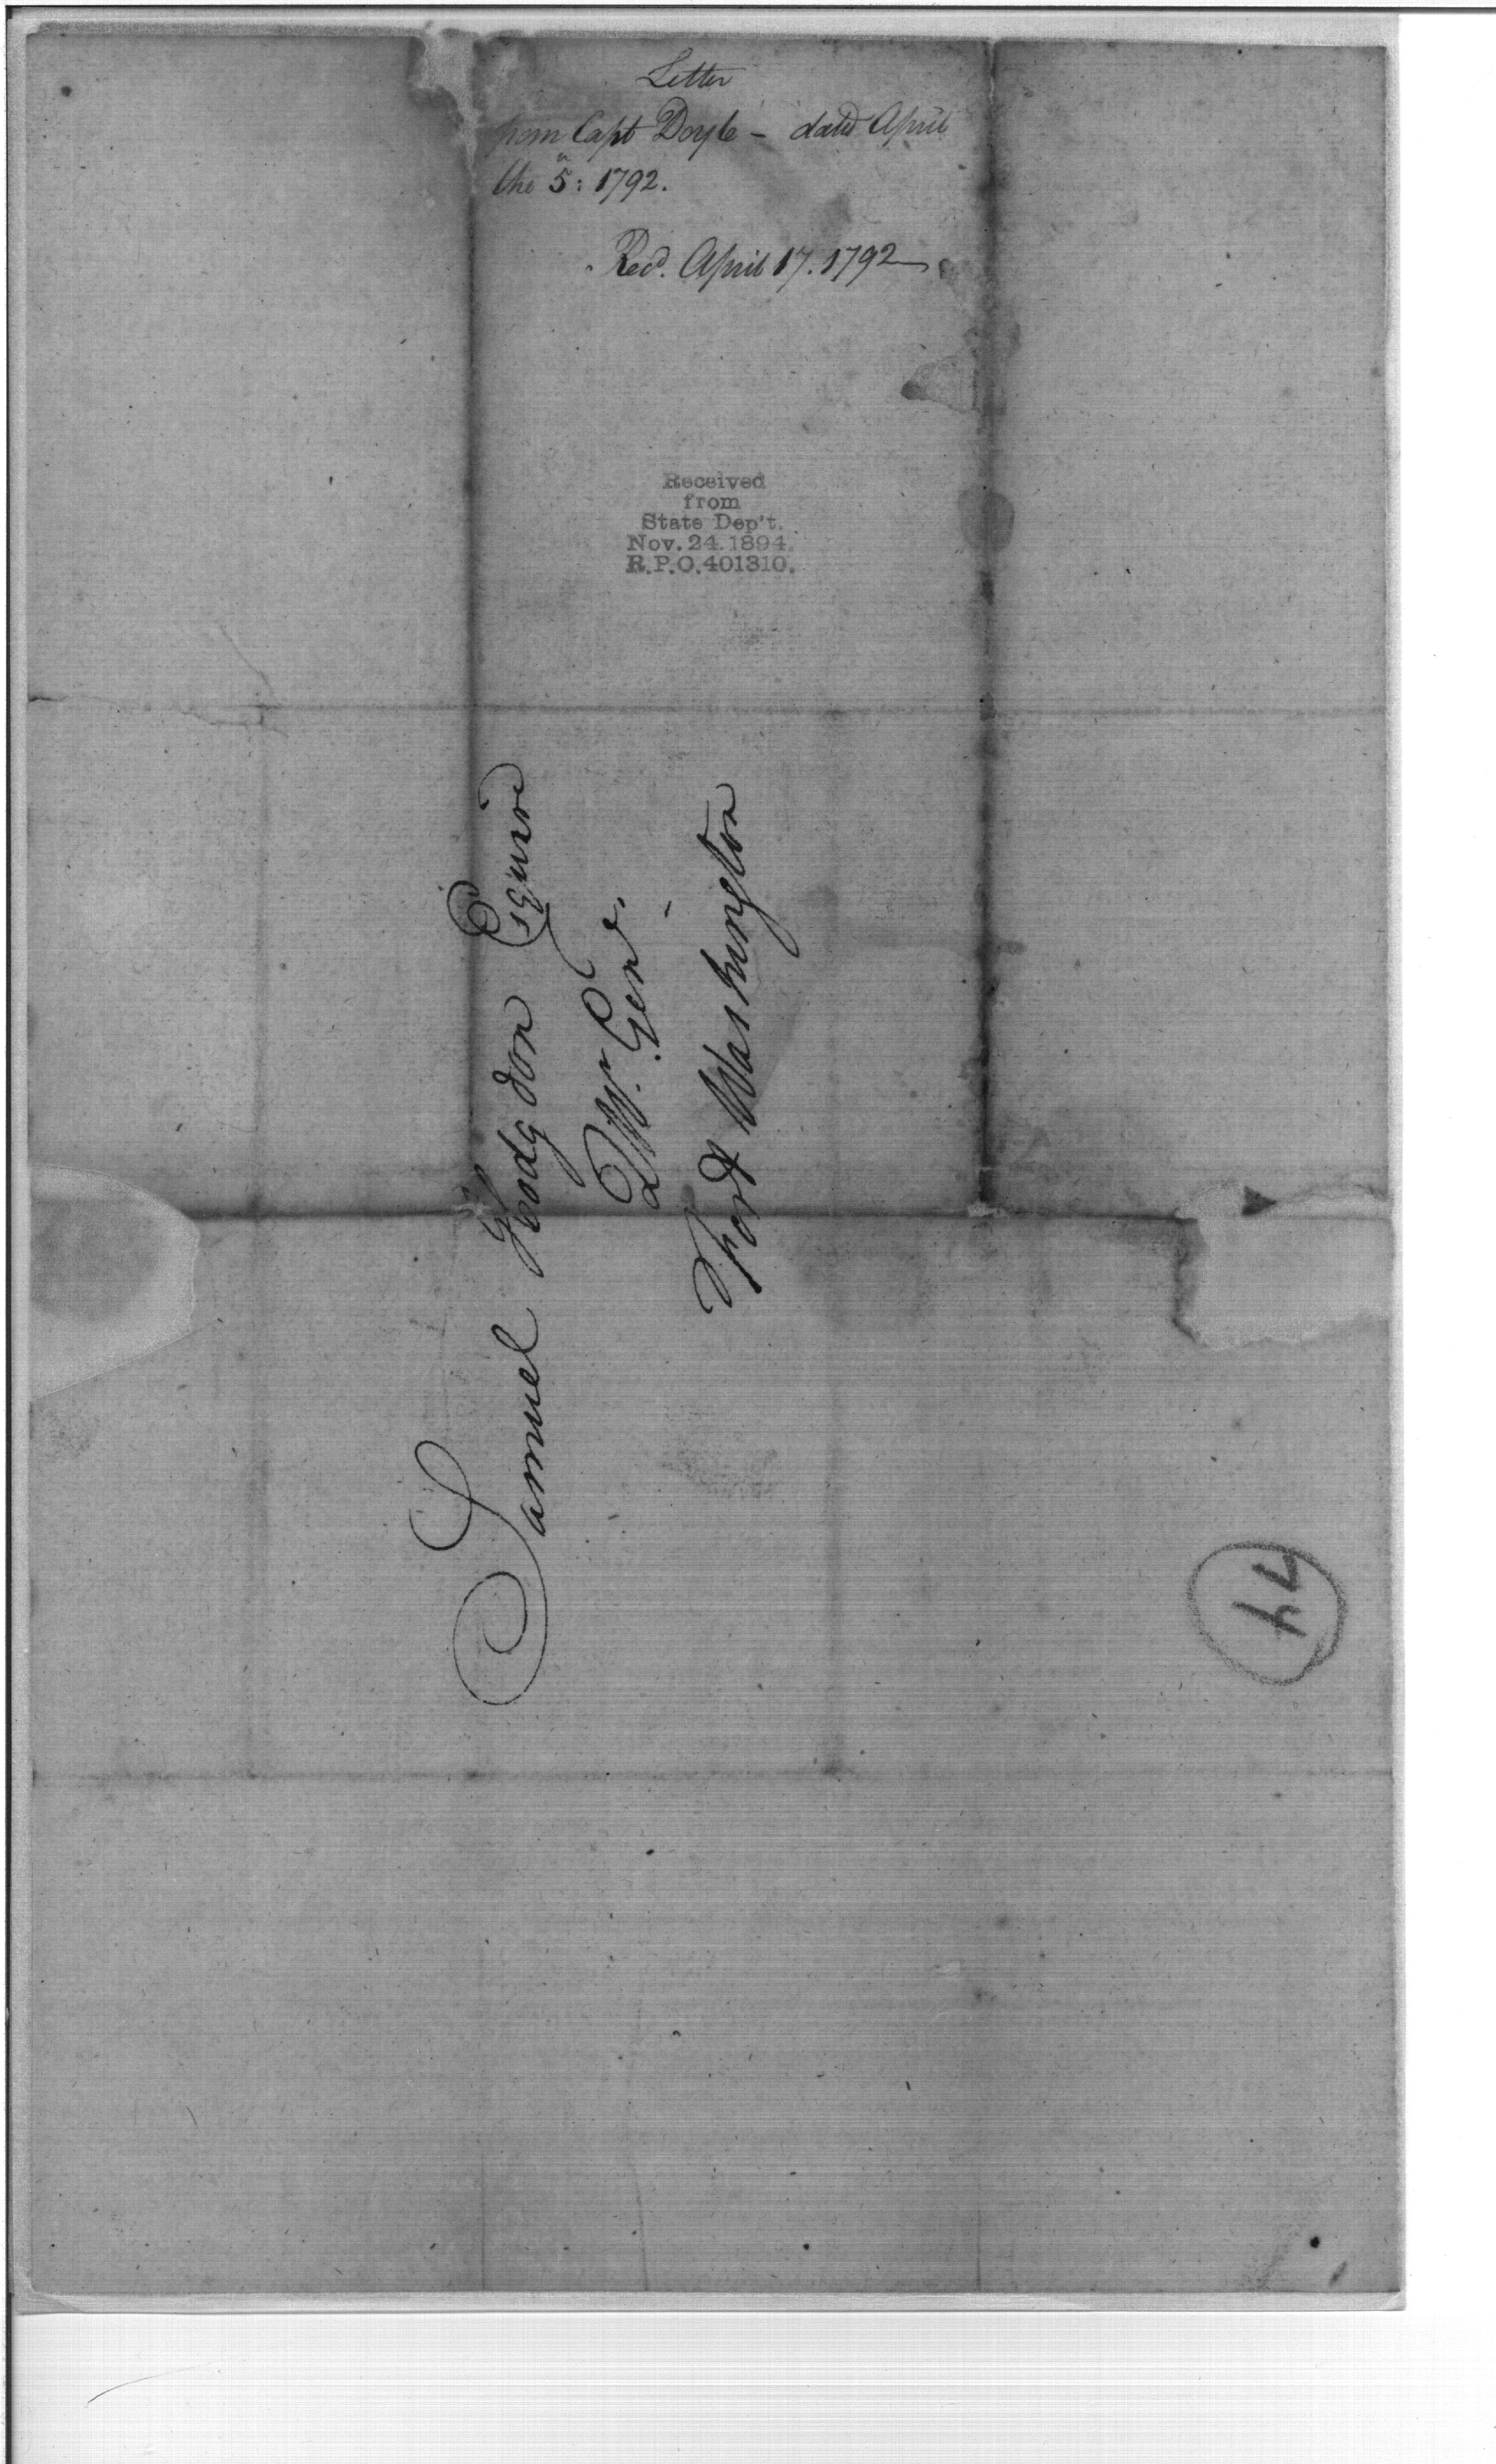 Letter
from Capt Doyle - dated April
the 5: 1792.
Recd. April 17. 1792
Received
from
State Dep't.
Nov. 24. 1894.
R.P.O. 401310.
Samuel Hodgdon Esquire
QMr. Genl.
Fort Washington
74